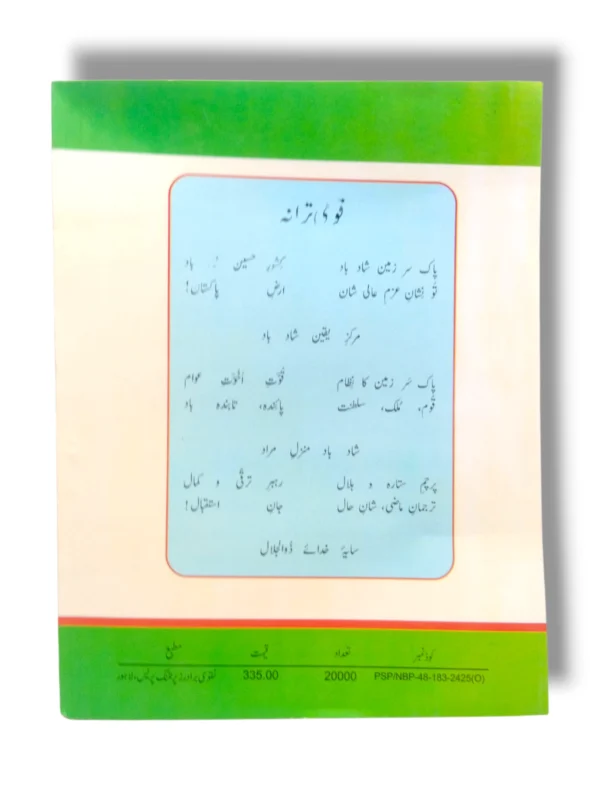 قومی ترانہ
پاک سر زمین شاد باد کشورِ حسین شاد باد
تُو نِشانِ عزمِ عالی شان ارضِ پاکستان!
مرکزِ یقین شاد باد
پاک سَر زمین کا نِظام قُوّتِ اُخُوّتِ عوام
قَوم، مُلک، سلطنت پائندہ، تابندہ باد
شاد باد منزلِ مراد
پرچمِ ستارہ و ہلال رہبرِ ترقّی و کمال
ترجمانِ ماضی، شانِ حال جانِ استقبال!
سایۂ خدائے ذُوالجلال
کوڈ نمبر تعداد قیمت مطبع
PSP/NBP-48-183-2425(O) 20000 335.00 نقوی برادرز پرنٹنگ پریس، لاہور